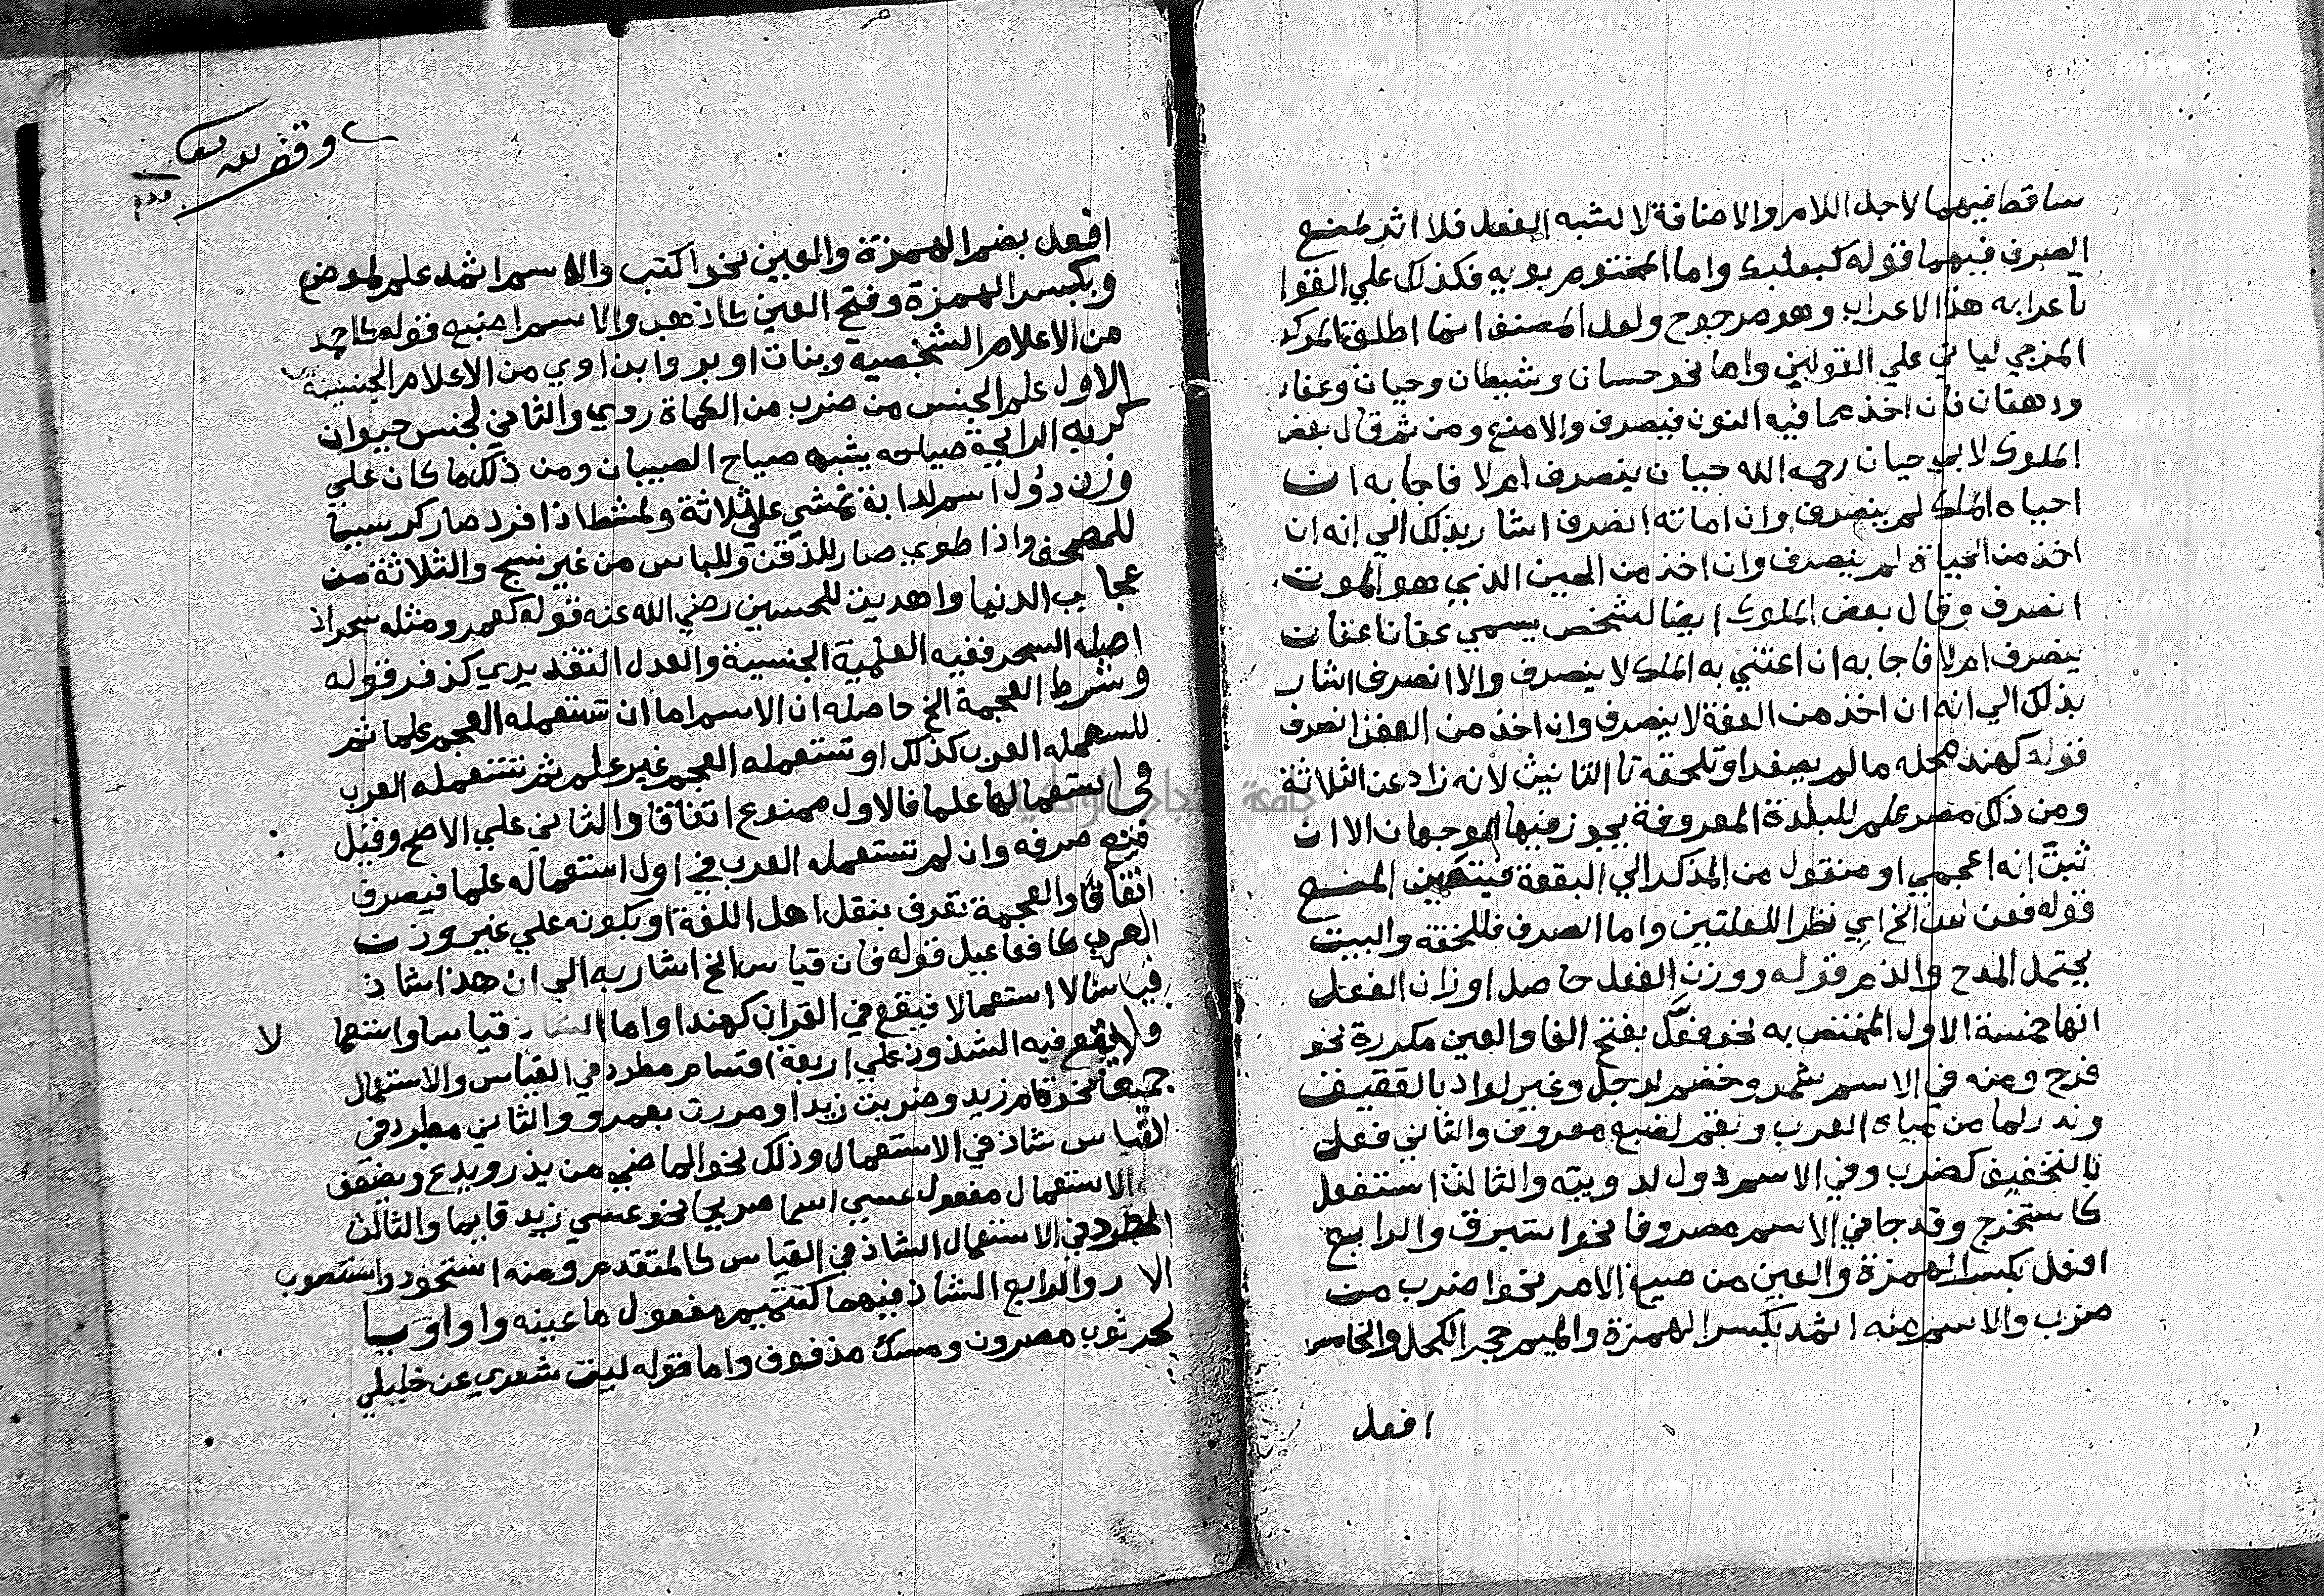 ساقط فيهما لاجل اللام والاضافة لا لشبه الفعل فلا اثر لمنع
الصرف فيهما قوله كبعلبك واما المختوم بويه فكذلك علي القول
باعرابه هذا الاعراب وهو مرجوح ولعل المصنف انما اطلق المركب
المزجي لياتي علي القولين واما نحو حسان وشيطان وحيان وعفان
ودهقان فان اخذ مما فيه النون فيصرف والا منع ومن ثم قال بعض
الملوك لابي حيان رحمه الله حيان ينصرف ام لا فاجابه ان
احياه الملك لم ينصرف وان اماته انصرف اشار بذلك الي انه ان
اخذ من الحياة لم ينصرف وان اخذ من الحين الذي هو الموت
انصرف وقال بعض الملوك ايضا لشخص يسمي عفانا عفان
ينصرف ام لا فاجابه ان اعتني به الملك لا ينصرف والا انصرف اشار
بذلك الي انه ان اخذ من العفة لا ينصرف وان اخذ من العفن انصرف
قوله كهند محله ما لم يصغر او تلحقه تا التانيث لانه زاد عن الثلاثة
ومن ذلك مصر علم للبلدة المعروفة يجوز فيها الوجهان الا ان
ثبت انه اعجمي او منقول من المذكر الي البقعة فيتعين المنع
قوله فمن الخ اي نظر اللعلتين واما الصرف فللخفة والبيت
يحتمل المدح والذم قوله ووزن الفعل حاصل اوزان الفعل
انها خمسة الاول المختص به نحو فعل بفتح الفا والعين مكررة نحو
فرح ومنه في الاسم شمر وخضم لرجل وغير لواد بالعقيف
وندر لما من مياه العرب وبقم لصبغ معروف والثاني فعل
بالتخفيف كضرب وفي الاسم دول لدويبة والثالث استفعل
كاستخرج وقد جا في الاسم مصروفا نحو استبرق والرابع
افعل بكسر الهمزة والعين من صيغ الامر نحو اضرب من
ضرب والاسم منه اثمد بكسر الهمزة والميم حجر الكحل والخامس
افعل
وقف لله تعالي
افعل بضم الهمزة والعين نحو اكتب والاسم اثمد علم لموضع
وبكسر الهمزة وفتح العين كاذهب والاسم اصبع قوله كاحمد
من الاعلام الشخصية وبنات اوبر وابن اوي من الاعلام الجنسية
الاول علم الجنس من ضرب من الكماة ردي والثاني لجنس حيوان
كريه الرايحة صياحه يشبه صياح الصبيان ومن ذلك ما كان علي
وزن دؤل اسم لدابة تمشي علي ثلاثة ولمشط اذا فرد صار كرسيا
للمصحف واذا طوي صار للذقن وللباس من غير نسج والثلاثة من
عجايب الدنيا واهدين للحسين رضي الله عنه قوله كعمر ومثله سحر اذ
اصله السحر ففيه العلمية الجنسية والعدل التقديري كذفر قوله
وشرط العجمة الخ حاصله ان الاسم اما ان تستعمله العجم علما ثم
تستعمله العرب كذلك او تستعمله العجم غير علم ثم تستعمله العرب
في استعمالها علما فالاول ممنوع اتفاقا والثاني علي الاصح وقيل
صرفه وان لم تستعمله العرب في اول استعماله علما فيصرف
اتفاقا والعجمة تعرف بنقل اهل اللغة او بكونه علي غير وزن
العرب كافعاعيل قوله فان قياس الخ اشار به الي ان هذا شاذ
قياسا لا استعمالا فيقع في القران كهندا واما الشاذ قياسا واستعما لا
ولا يقع فيه الشذوذ علي اربعة اقسام مطرد في القياس والاستعمال
جميعا نحو قام زيد وضربت زيدا ومررت بعمرو والثاني مطرد في
القياس شاذ في الاستعمال وذلك نحو الماضي من يذر ويدع وبضعف
الاستعمال مفعول عسي اسما صريحا نحو عسي زيد قايما والثالث
المطرد في الاستعمال الشاذ في القياس كالمتقدم ومنه استحوذ واستصوب
الامر والرابع الشاذ فيهما كتتميم مفعول ما عينه واو او يا
نحو ثوب مصوون ومسك مدووف واما قوله ليت شعري عن خليلي